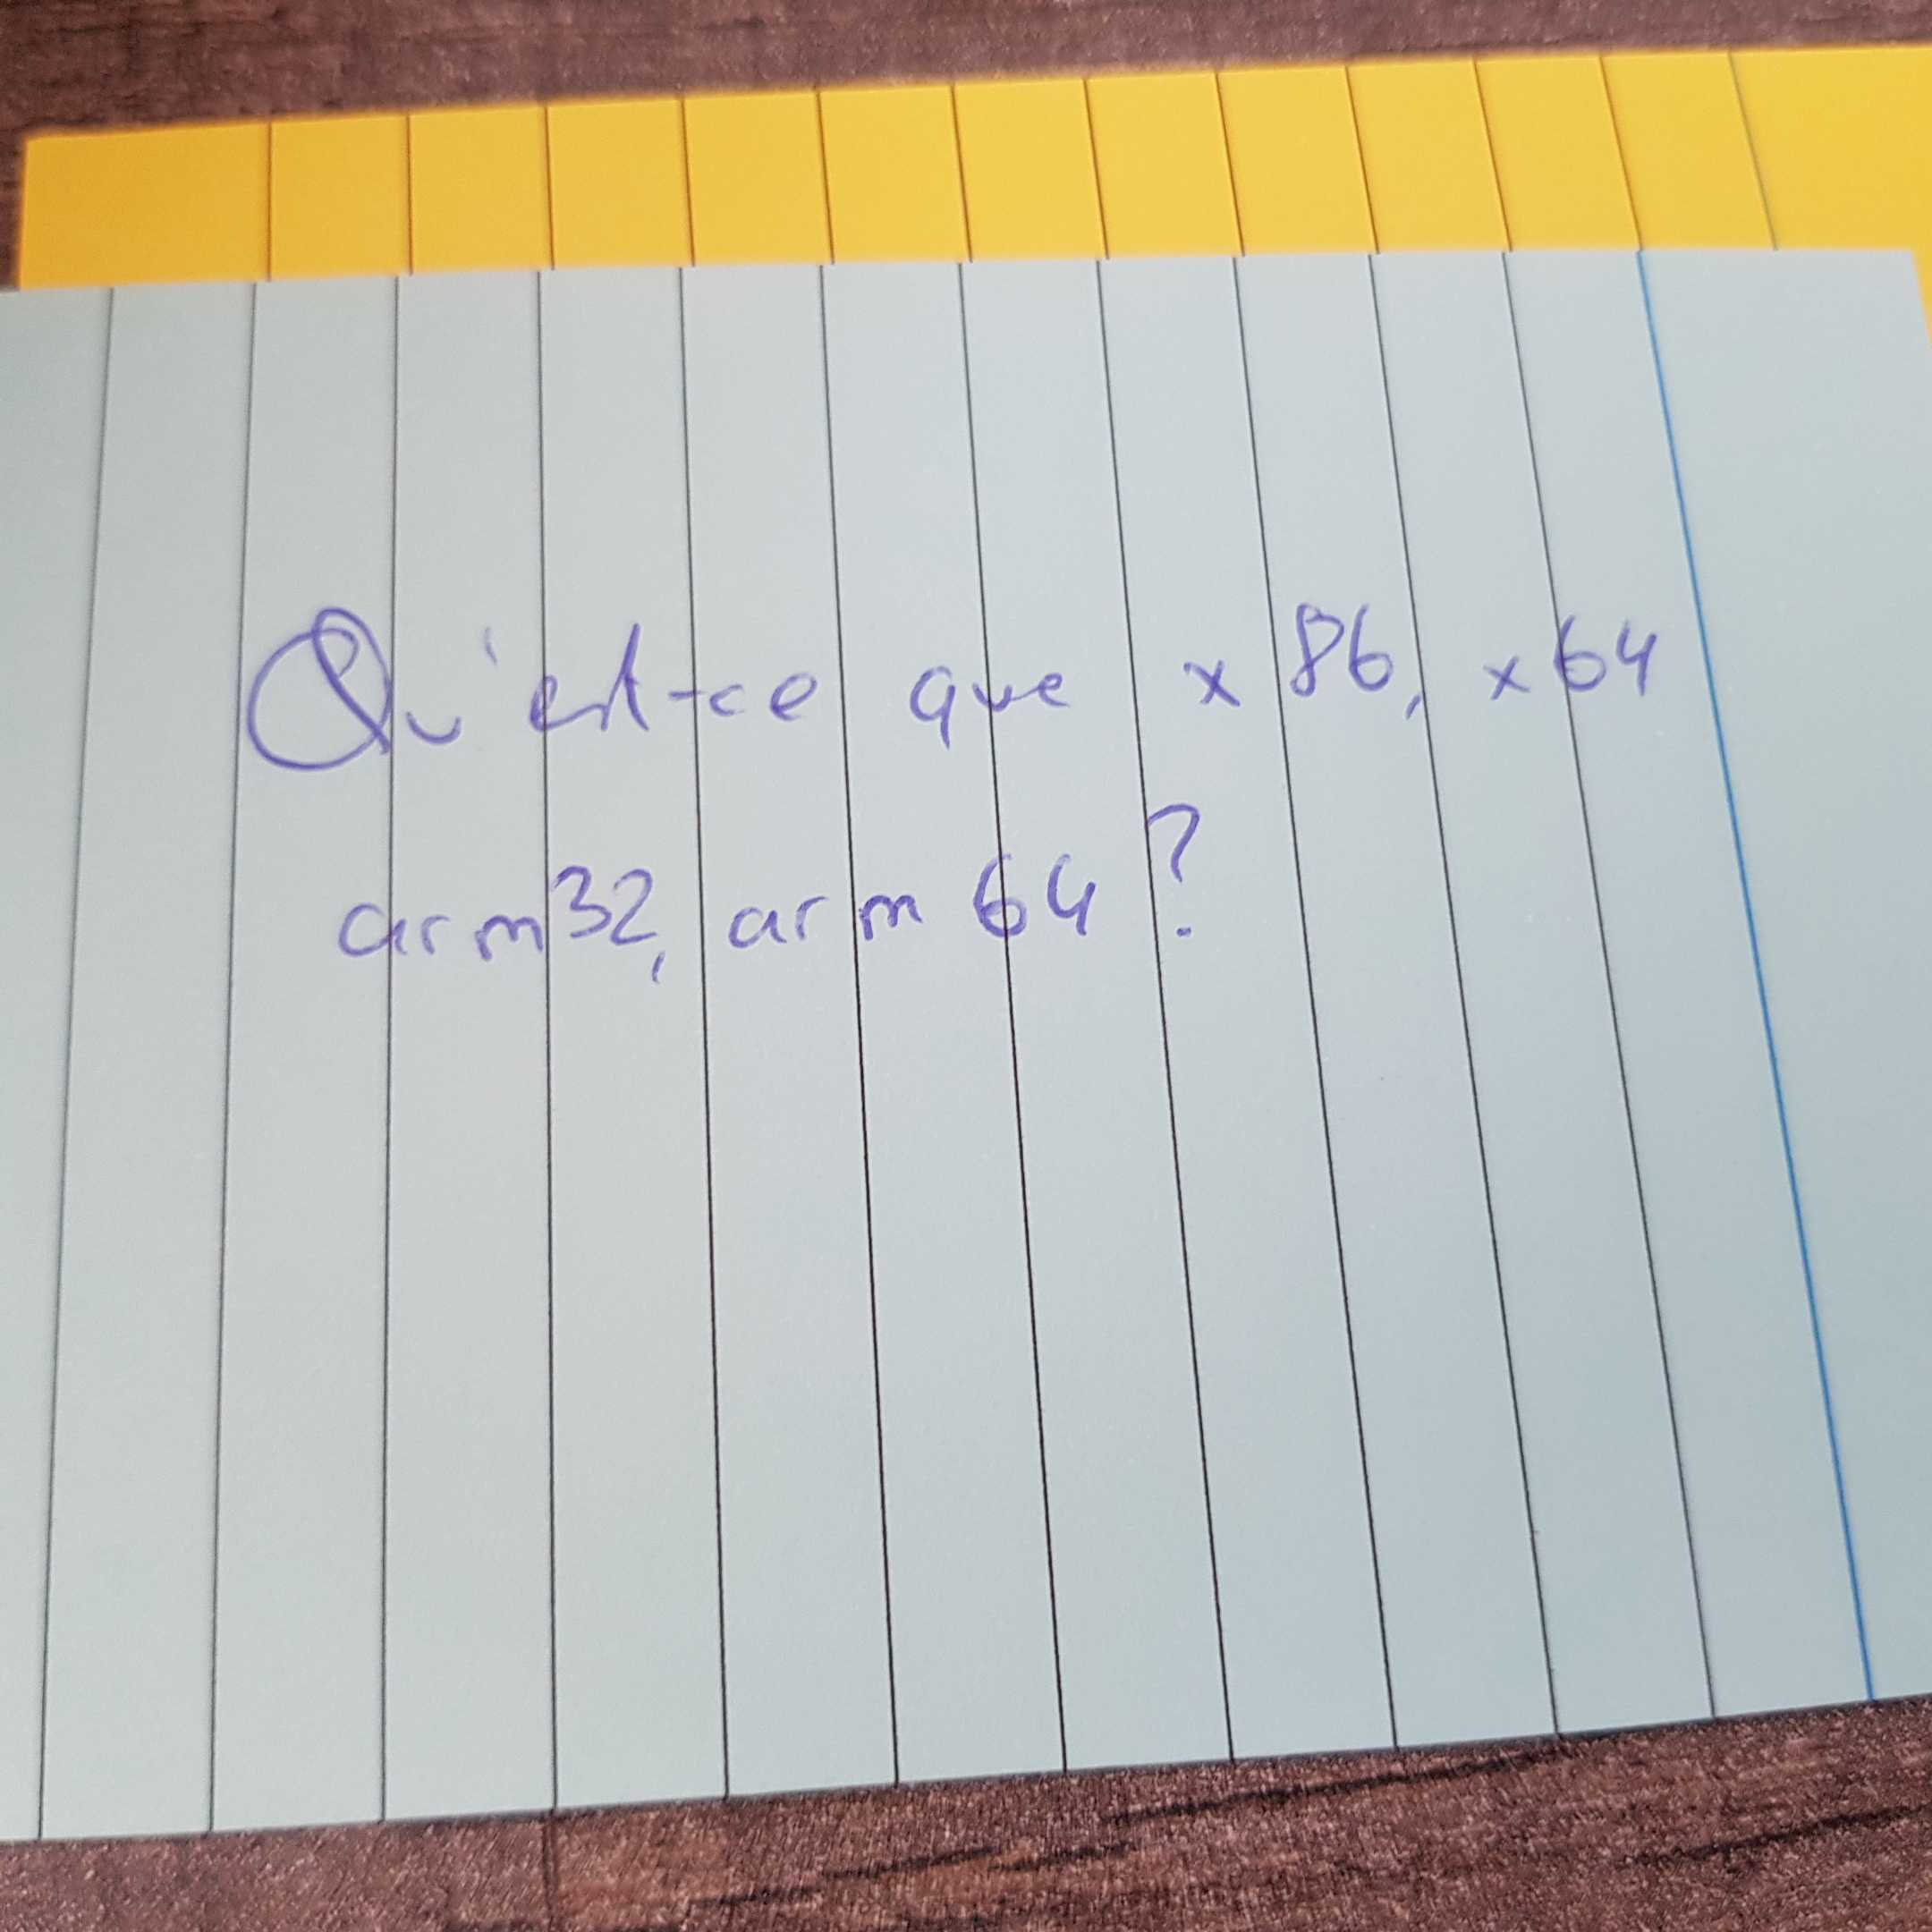 Qu'est-ce que x86, x64
arm32, arm64 ?